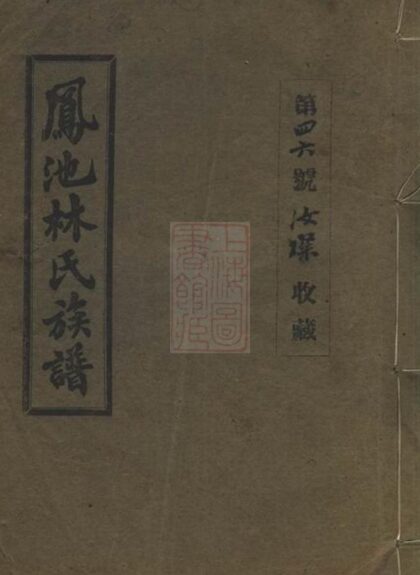 鳳池林氏族譜
第四六號汝琛收藏
上海圖
書館藏